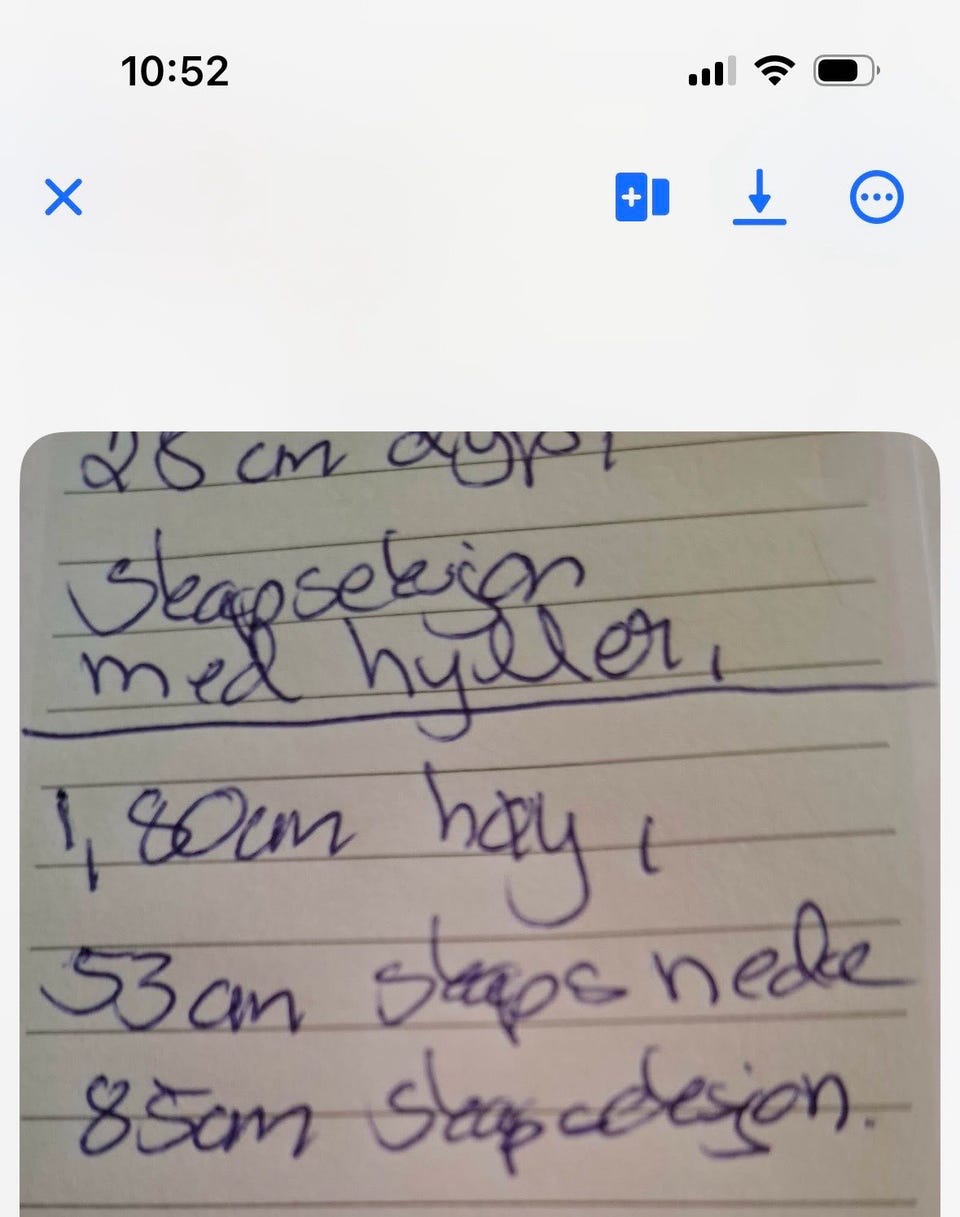 10:52
28 cm dyp,
Skapseksjon
med hyller,
1,80cm høy,
53cm skaps nede
85cm